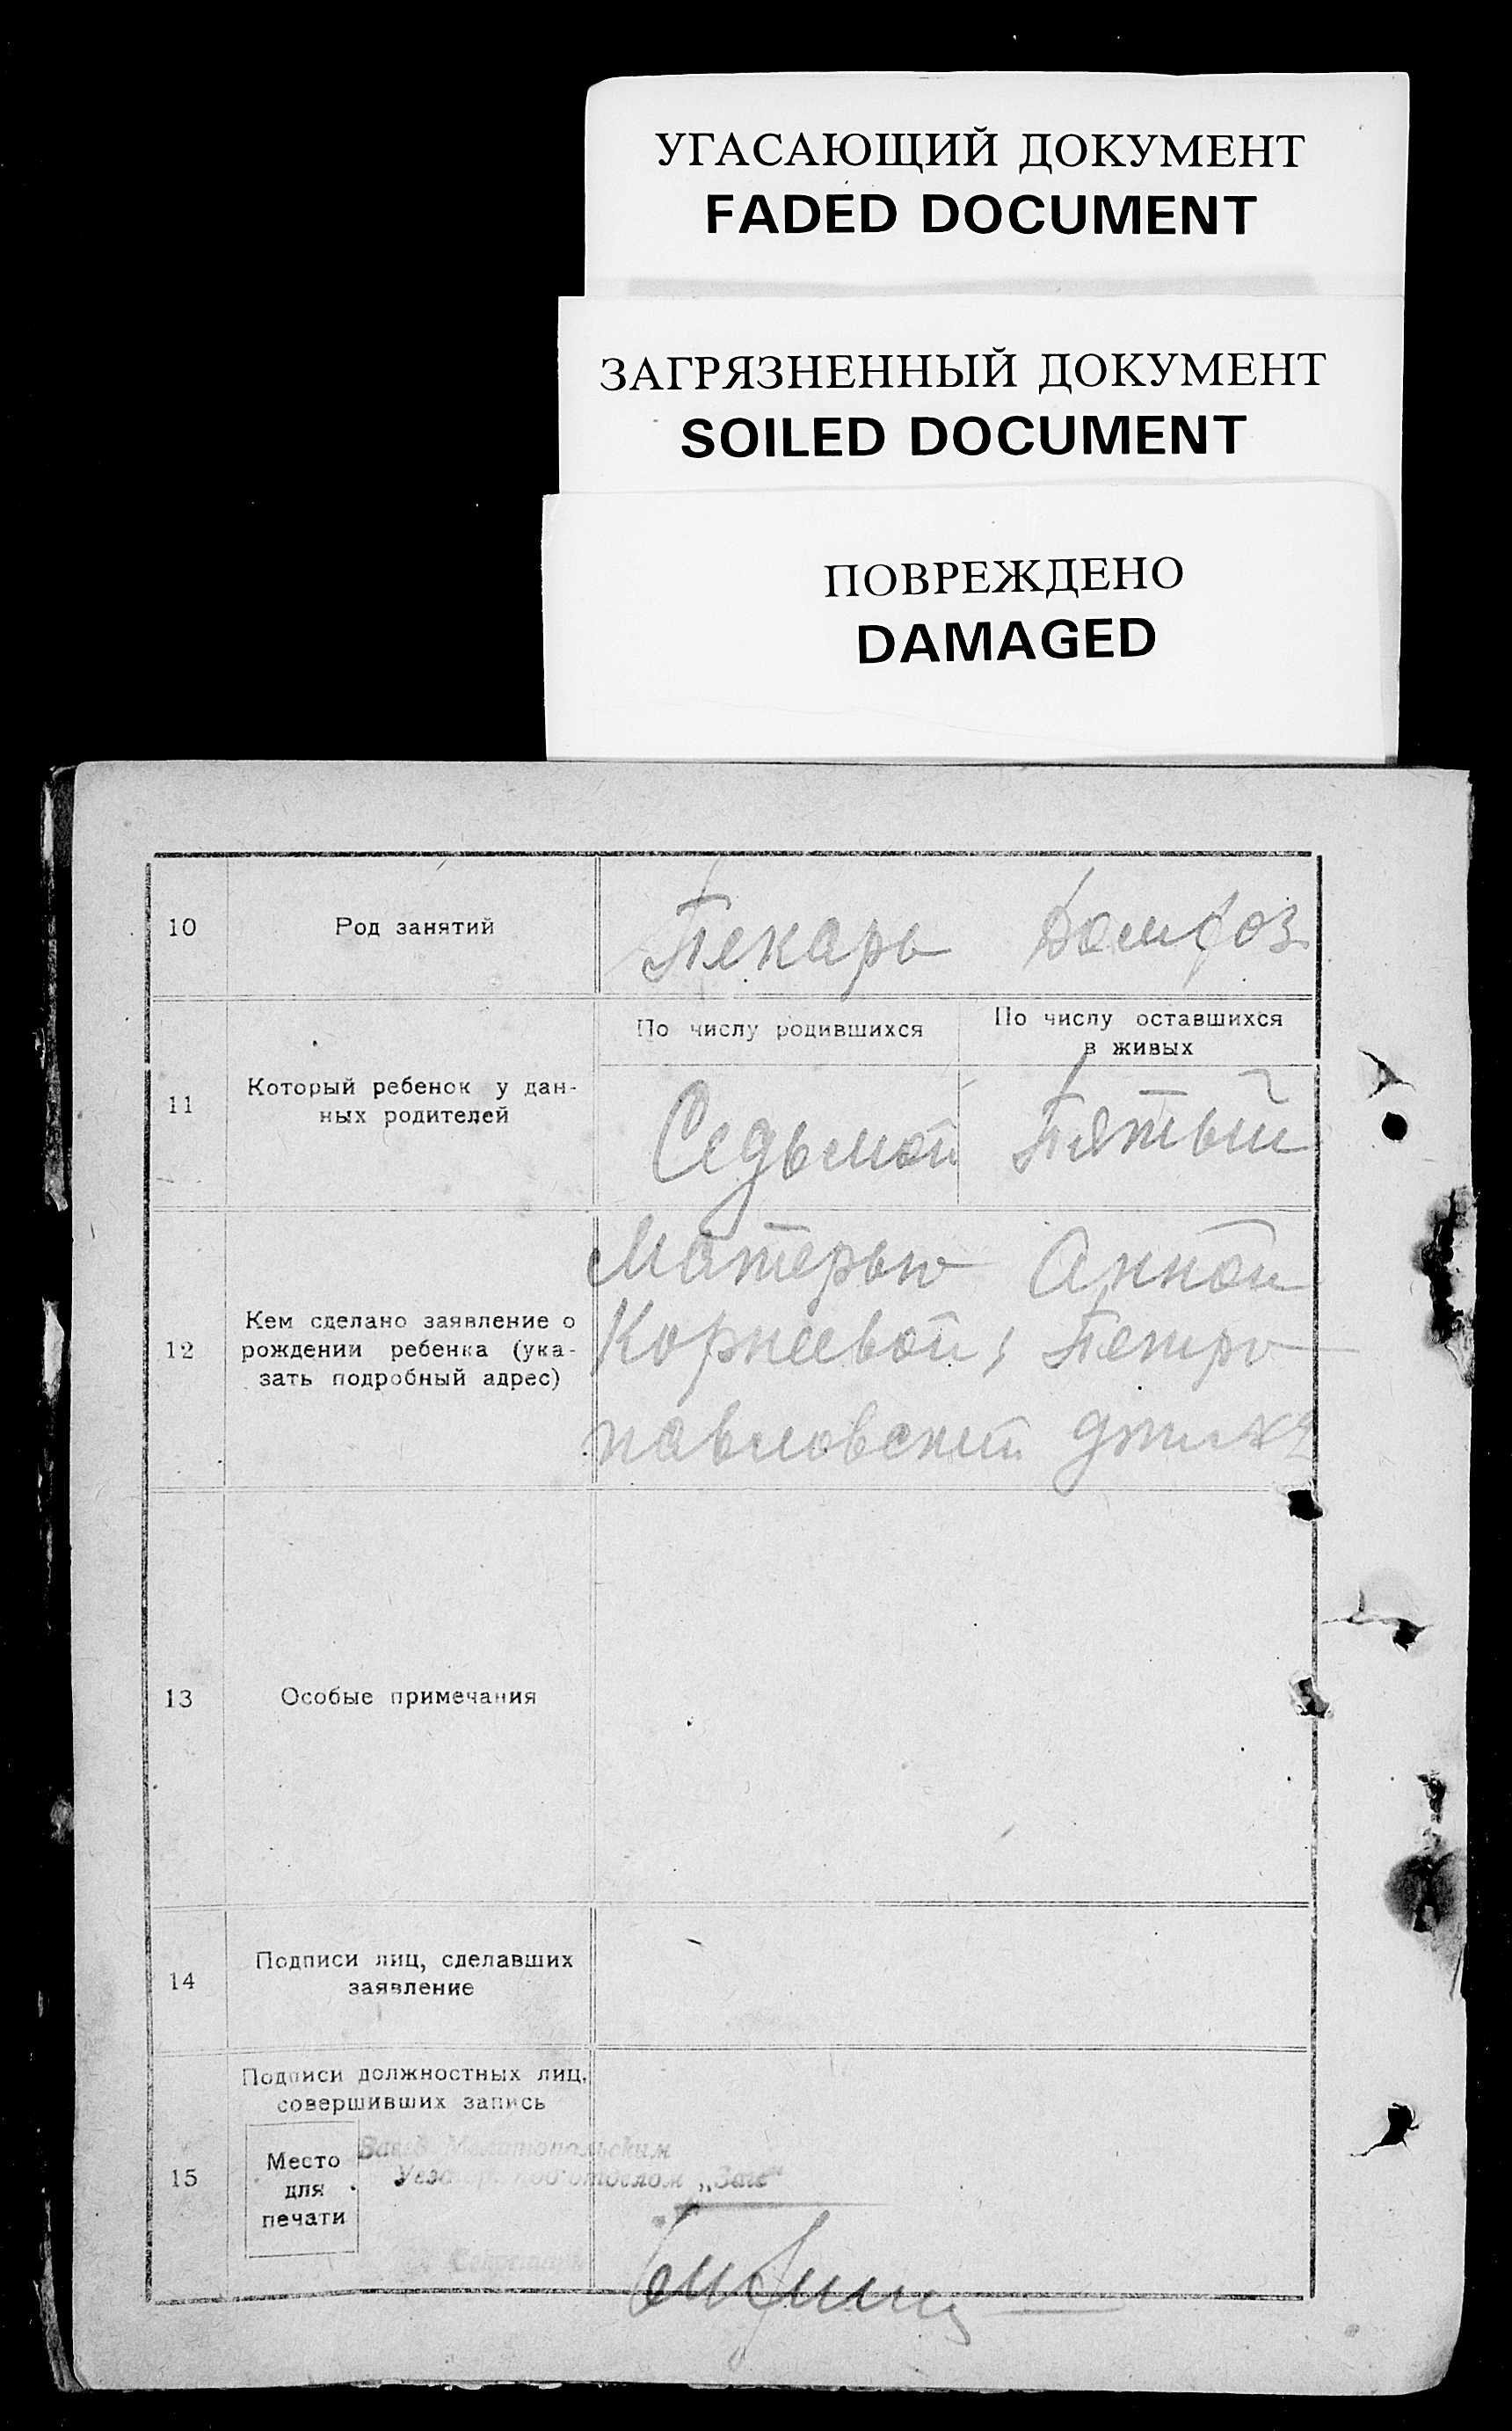 УГАСАЮЩИЙ ДОКУМЕНТ
FADED DOCUMENT
ЗАГРЯЗНЕННЫЙ ДОКУМЕНТ
SOILED DOCUMENT
ПОВРЕЖДЕНО
DAMAGED
10 Род занятий Пекарь
11 Который ребенок у дан-
ных родителей
По числу родившихся
По числу оставшихся
в живых
Седьмой Пятый
12 Кем сделано заявление о
рождении ребенка (ука-
зать подробный адрес)
Матерью Анной
Корнеевой, Петро
павловский
13 Особые примечания
14 Подписи лиц, сделавших
заявление
15 Подписи должностных лиц,
совершивших запись
Место
для
печати
Завед. Мелитопольским
подотделом „Загс"
Секретарь